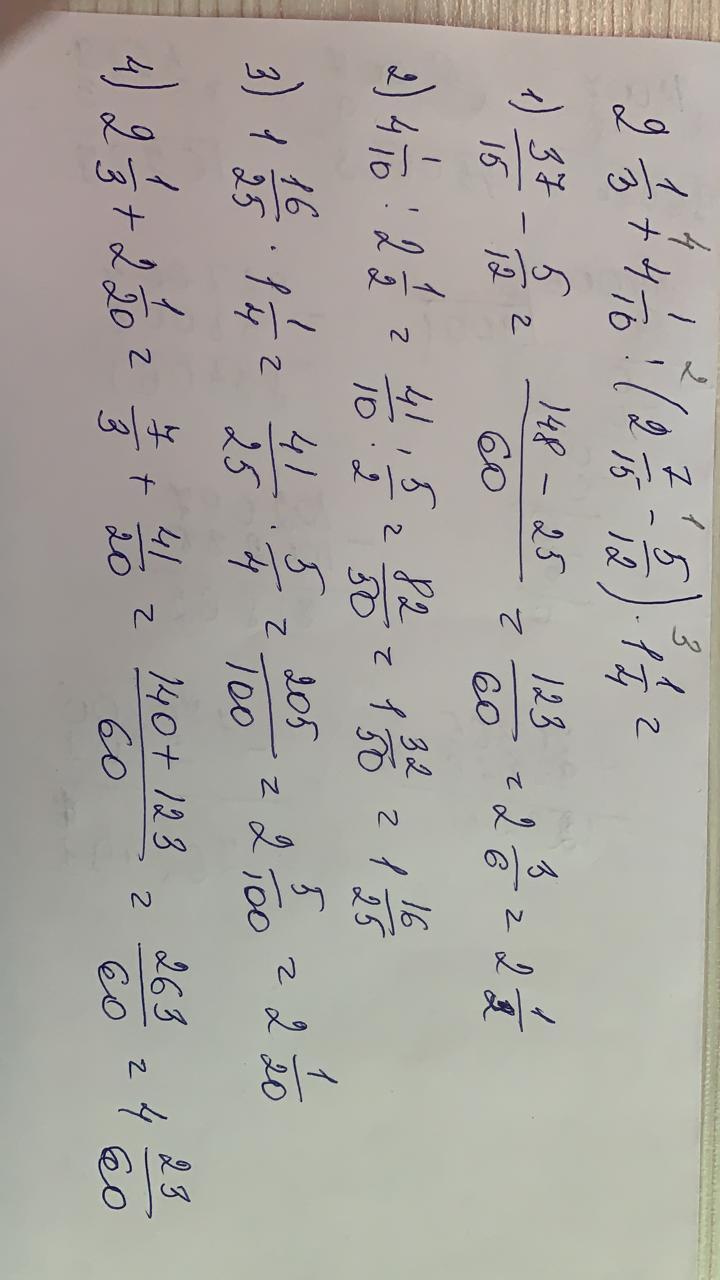 2 1/3 + 4 1/10 : (2 7/15 - 5/12) · 1 1/4 =
4 2 1 3
1) 37/15 - 5/12 = (148 - 25)/60 = 123/60 = 2 3/6 = 2 1/2
2) 4 1/10 : 2 1/2 = 41/10 : 5/2 = 82/50 = 1 32/50 = 1 16/25
3) 1 16/25 · 1 1/4 = 41/25 · 5/4 = 205/100 = 2 5/100 = 2 1/20
4) 2 1/3 + 2 1/20 = 7/3 + 41/20 = (140 + 123)/60 = 263/60 = 4 23/60